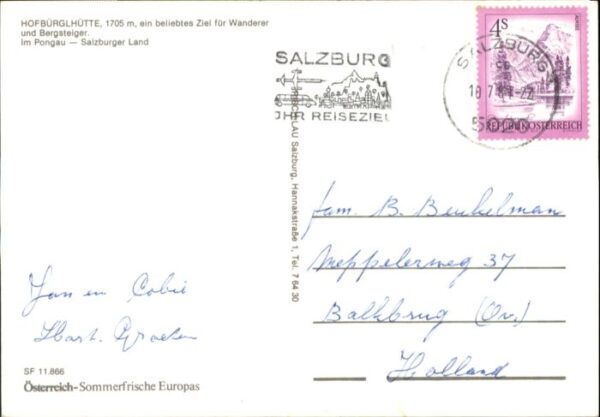 HOFBÜRGLHÜTTE, 1705 m, ein beliebtes Ziel für Wanderer
und Bergsteiger.
Im Pongau — Salzburger Land
SALZBURG
IHR REISEZIEL
SALZBURG
5020
4 S
REPUBLIK ÖSTERREICH
Salzburg, Hannakstraße 1, Tel. 7 64 30
fam. B. Beukelman
Meppelerweg 37
Balkbrug (Ov.)
Holland
Jan en Cobie
Hart. Groeten
SF 11.866
Österreich-Sommerfrische Europas